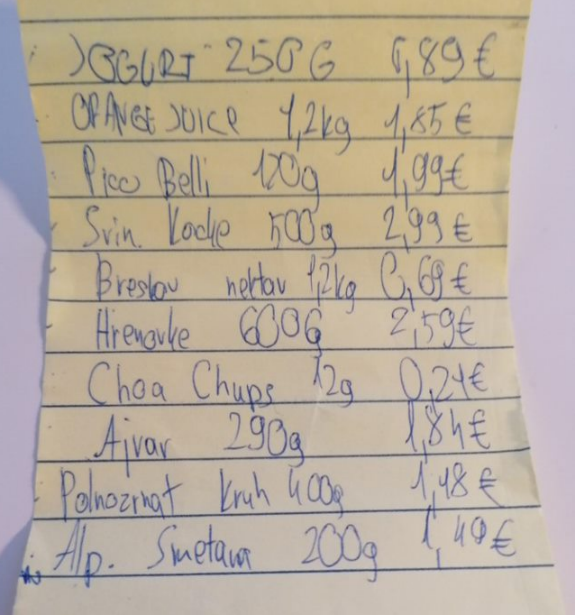 JOGURT 250 G 0,89€
ORANGE JUICE 1,2kg 1,85€
Pico Belli 120g 1,99€
Svin. kocke 500g 2,99€
Breskov nektar 1,2kg 0,69€
Hrenovke 600G 2,59€
Choa Chups 12g 0,24€
Ajvar 290g 1,84€
Polnozrnat kruh 400g 1,48€
Alp. Smetana 200g 1,49€